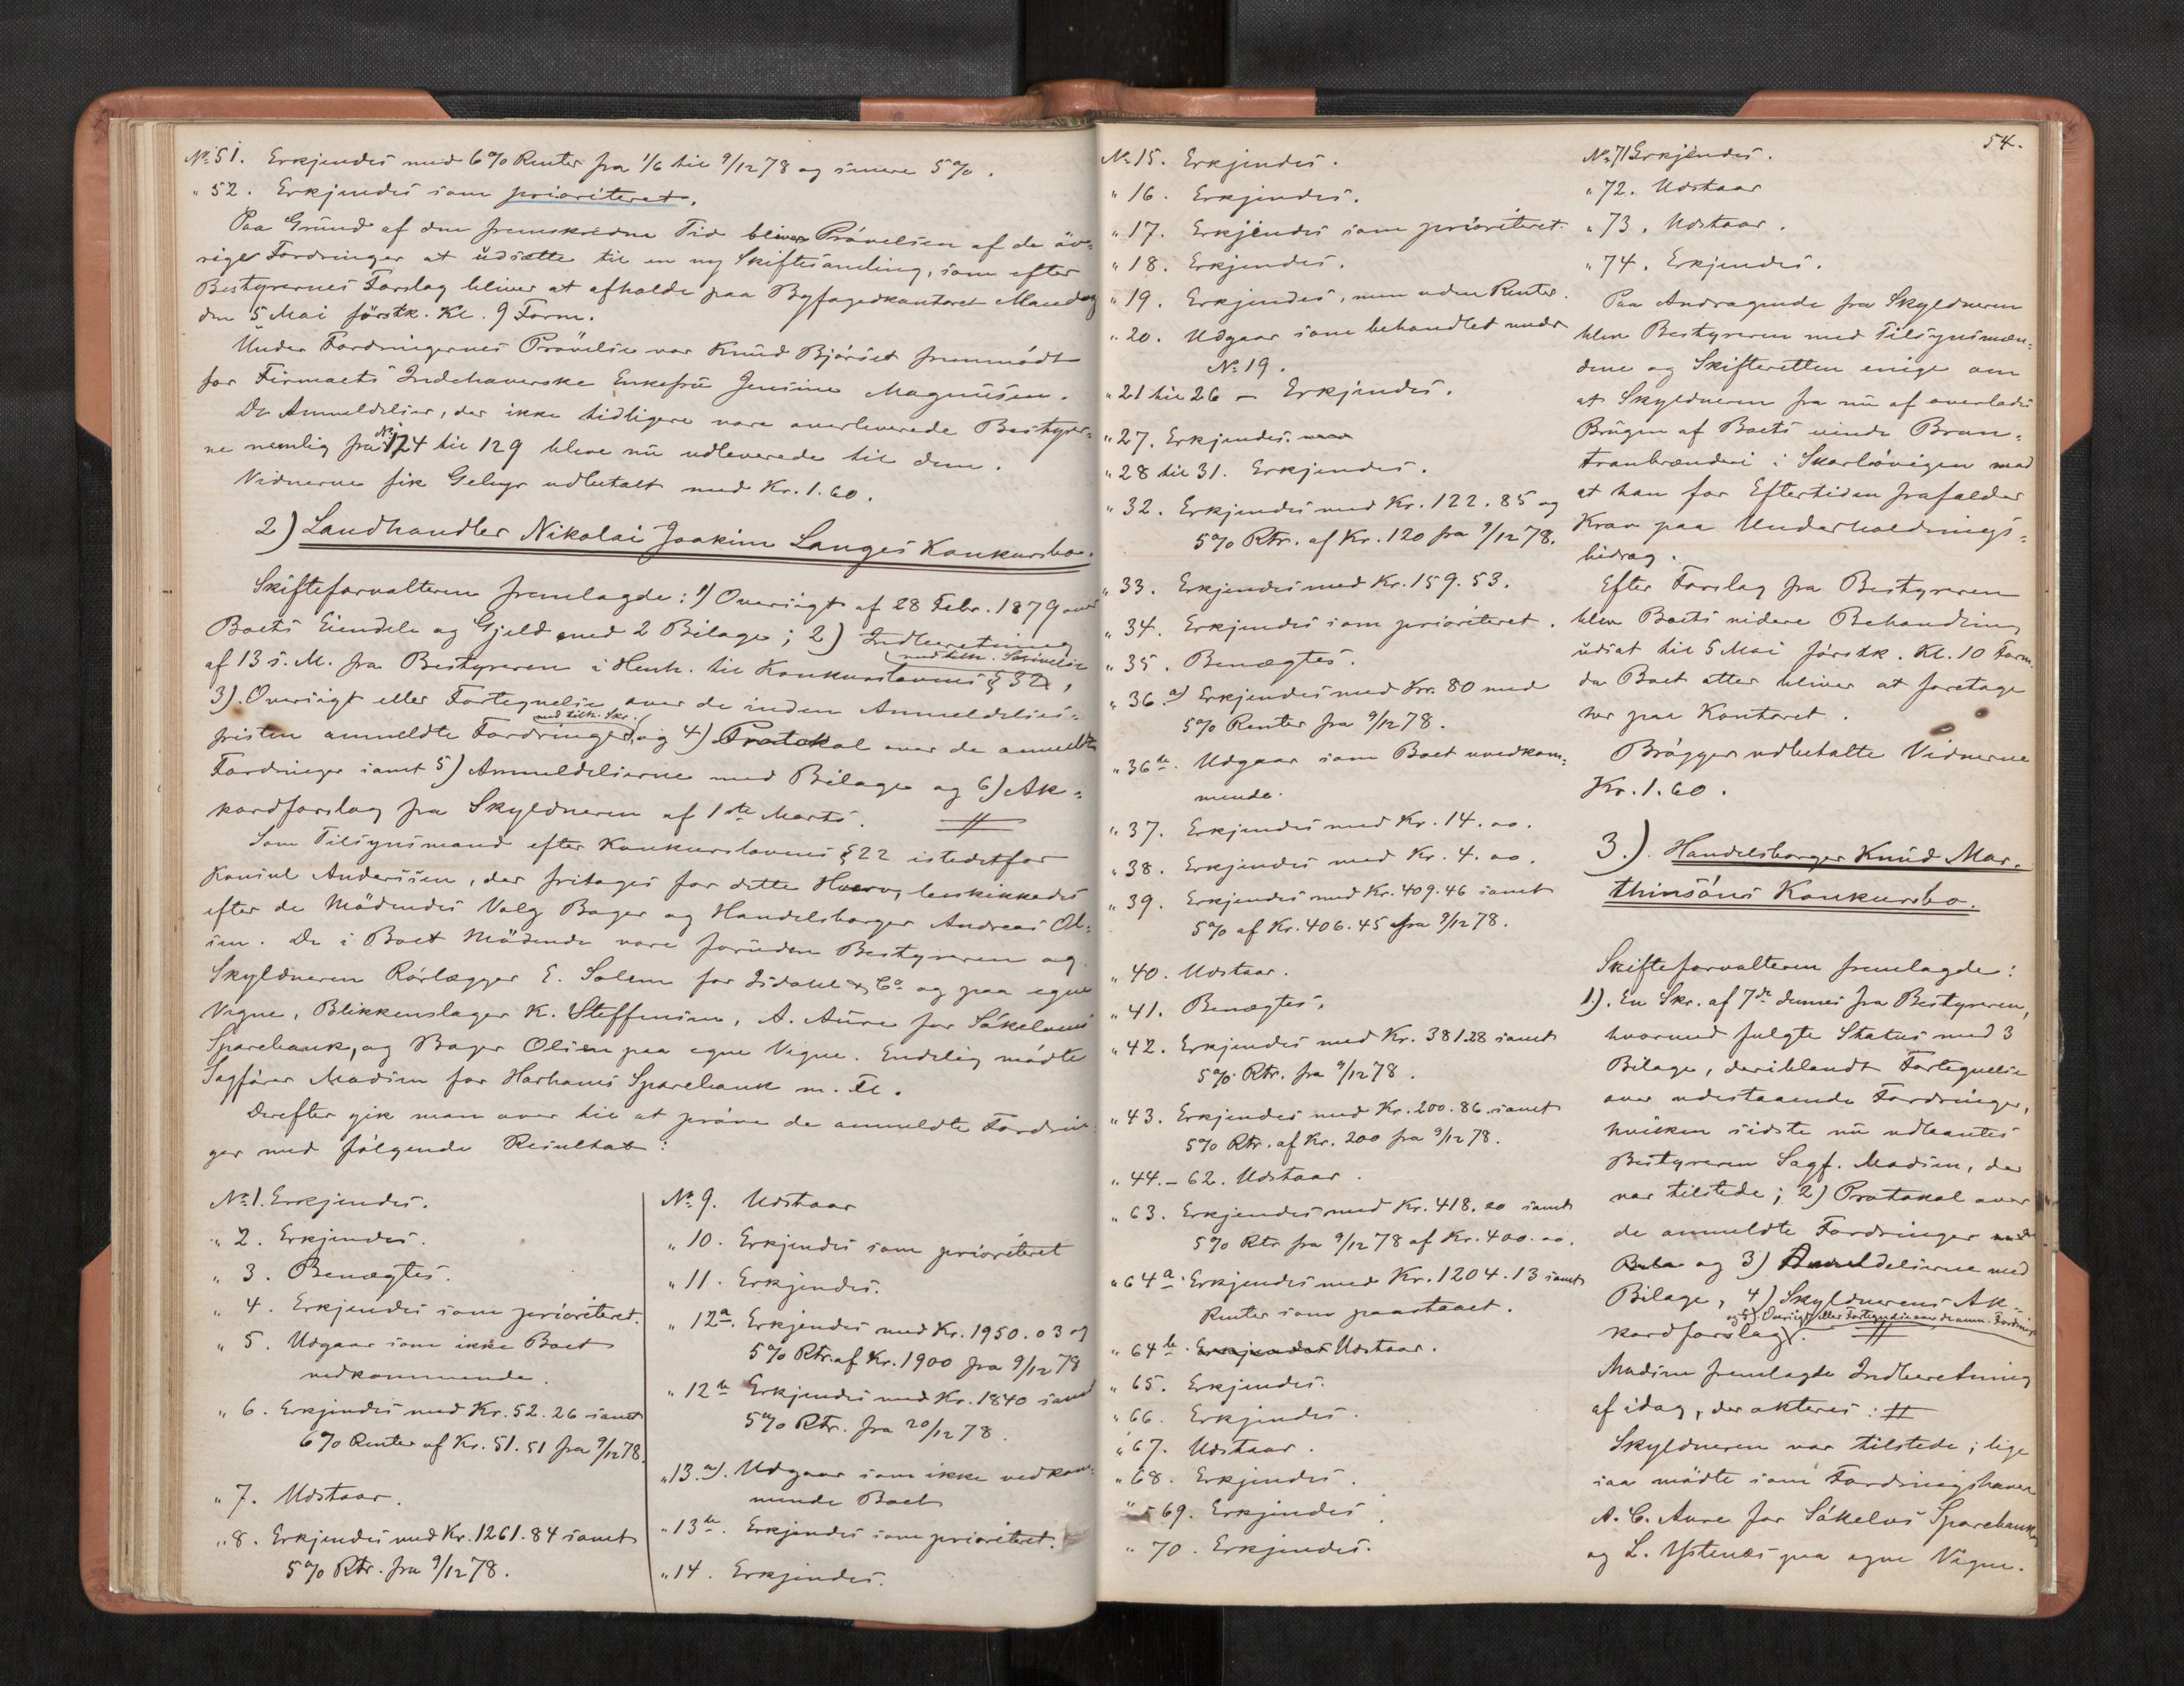 No 51. Erkjendes med 6% Renter fra 1/6 til 9/12 78 og senere 5%.
" 52. Erkjendes som prioriteret.
Paa Grund af den fremskredne Tid bliver Prövelsen af de öv-
rige Fordringer at udsætte til en ny Skiftesamling, som efter
Bestyrernes Forslag bliver at afholde paa Byfogedkontoret Mandag
den 5 Mai förstk. Kl. 9 Form.
Under Fordringernes Prövelse var Knud Björset fremmödt
for Firmaets Indehaverske Enkefru Jensine Magnusen.
De Anmeldelser, der ikke tidligere vare overleverede Bestyrer-
ne nemlig fra No 124 til 129 bleve nu udleverede til dem.
Vidnerne fik Gebyr udbetalt med Kr. 1.60.
2) Landhandler Nikolai Joakim Langes Konkursbo.
Skifteforvalteren fremlagde: 1) Oversigt af 28 Febr. 1879 over
Boets Eiendele og Gjeld med 2 Bilage; 2) Indberetning
med tilh. Skrivelse
af 13 s. M. fra Bestyreren i Henh. til Konkurslovens § 32,
3). Oversigt eller Fortegnelse over de inden Anmeldelses-
med tilh. Skr.
fristen anmeldte Fordringer, og 4) Protokol over de anmeldte
Fordringer samt 5) Anmeldelserne med Bilage og 6) Ak-
kordforslag fra Skyldneren af 1ste Marts.
Som Tilsynsmand efter Konkurslovens § 22 istedetfor
Konsul Anderssen, der fritages for dette Hverv, beskikkedes
efter de Mödendes Valg Bager og Handelsborger Andreas Ol-
sen. De i Boet Mödende vare foruden Bestyreren og
Skyldneren Rörlægger E. Solem for Isdahl & Co og paa egne
Vegne, Blikkenslager K. Steffensen, A. Aure for Sökelvens
Sparebank, og Bager Olsen paa egne Vegne. Endelig mödte
Sagförer Madsen for Harhams Sparebank m. Fl.
Derefter gik man over til at pröve de anmeldte Fordrin-
ger med fölgende Resultat:
No 1. Erkjendes.
" 2. Erkjendes.
" 3. Benægtes.
" 4. Erkjendes som prioriteret.
" 5. Udgaar som ikke Boet
vedkommende.
" 6. Erkjendes med Kr. 52.26 samt
6% Renter af Kr. 51.51 fra 9/12 78.
" 7. Udstaar.
" 8. Erkjendes med Kr. 1261.84 samt
5% Rtr. fra 9/12 78.
No 9. Udstaar
" 10. Erkjendes som prioriteret
" 11. Erkjendes.
" 12a. Erkjendes med Kr. 1950.03 og
5% Rtr. af Kr. 1900 fra 9/12 78
" 12b Erkjendes med Kr. 1840 samt
5% Rtr. fra 20/12 78.
" 13.a). Udgaar som ikke vedkom-
mende Boet
" 13b. Erkjendes som prioriteret.
" 14. Erkjendes.
No 15. Erkjendes.
" 16. Erkjendes.
" 17. Erkjendes som prioriteret.
" 18. Erkjendes.
" 19. Erkjendes, men uden Renter.
" 20. Udgaar som behandlet under
No 19.
" 21 til 26 – Erkjendes.
" 27. Erkjendes.
" 28 til 31. Erkjendes.
" 32. Erkjendes med Kr. 122.85 og
5% Rtr. af Kr. 120 fra 9/12 78.
" 33. Erkjendes med Kr. 159.53.
" 34. Erkjendes som prioriteret.
" 35. Benægtes.
" 36.a) Erkjendes med Kr. 80 med
5% Renter fra 9/12 78.
" 36b. Udgaar som Boet uvedkom-
mende.
" 37. Erkjendes med Kr. 14.00.
" 38. Erkjendes med Kr. 4.00.
" 39. Erkjendes med Kr. 409.46 samt
5% af Kr. 406.45 fra 9/12 78.
" 40. Udstaar.
" 41. Benægtes.
" 42. Erkjendes med Kr. 381.28 samt
5% Rtr. fra 9/12 78.
" 43. Erkjendes med Kr. 200.86 samt
5% Rtr. af Kr. 200 fra 9/12 78.
" 44.– 62. Udstaar.
" 63. Erkjendes med Kr. 418.20 samt
5% Rtr fra 9/12 78 af Kr. 400.00.
" 64a. Erkjendes med Kr. 1204.13 samt
Renter som paastaaet.
" 64b. Erkjendes Udstaar.
" 65. Erkjendes.
" 66. Erkjendes.
" 67. Udstaar.
" 68. Erkjendes.
" 69. Erkjendes
" 70. Erkjendes.
54.
No 71 Erkjendes.
" 72. Udstaar
" 73. Udstaar.
" 74. Erkjendes.
Paa Andragende fra Skyldneren
blev Bestyreren med Tilsynsmæn-
dene og Skifteretten enige om
at Skyldneren fra nu af overlades
Brugen af Boets Brun-
tranbrænderi i mod
at han for Eftertiden frafalder
Krav paa Underholdnings-
bidrag.
Efter Forslag fra Bestyreren
blev Boets videre Behandling
udsat til 5 Mai förstk. Kl. 10 Form.
da Boet atter bliver at foretage
her paa Kontoret.
Brögger udbetalte Vidnerne
Kr. 1.60.
3.). Handelsborger Knud Mar-
thinsöns Konkursbo.
Skifteforvalteren fremlagde:
1.). En Skr. af 7de dennes fra Bestyreren,
hvormed fulgte Status med 3
Bilage, deriblandt Fortegnelse
over udestaaende Fordringer,
hvilken sidste nu udlaantes
Bestyreren Sagf. Madsen, der
var tilstede; 2) Protokol over
de anmeldte Fordringer
og 3) Anmeldelserne med
Bilage, 4) Skyldnerens Ak-
og 5) Oversigt eller Fortegnelse over de anm. Fordringer
kordforslag.
Madsen fremlagde Indberetning
af idag, der akteres:
Skyldneren var tilstede; lige
saa mödte som Fordringshaver
A. C. Aure for Sökelvs Sparebank
og L. Ystenæs paa egne Vegne.